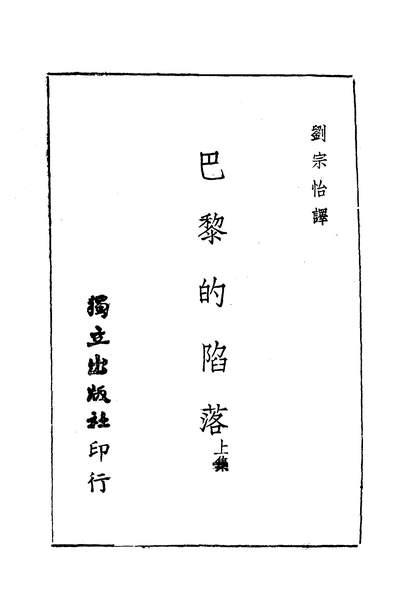 劉宗怡譯
巴黎的陷落
上集
獨立出版社印行